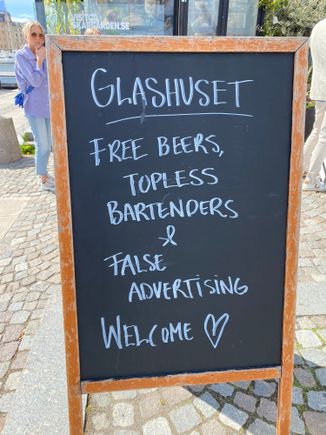 VISIT
SKARGARDEN.SE
GLASHUSET
FREE BEERS,
TOPLESS
BARTENDERS
&
FALSE
ADVERTISING
WELCOME ♡